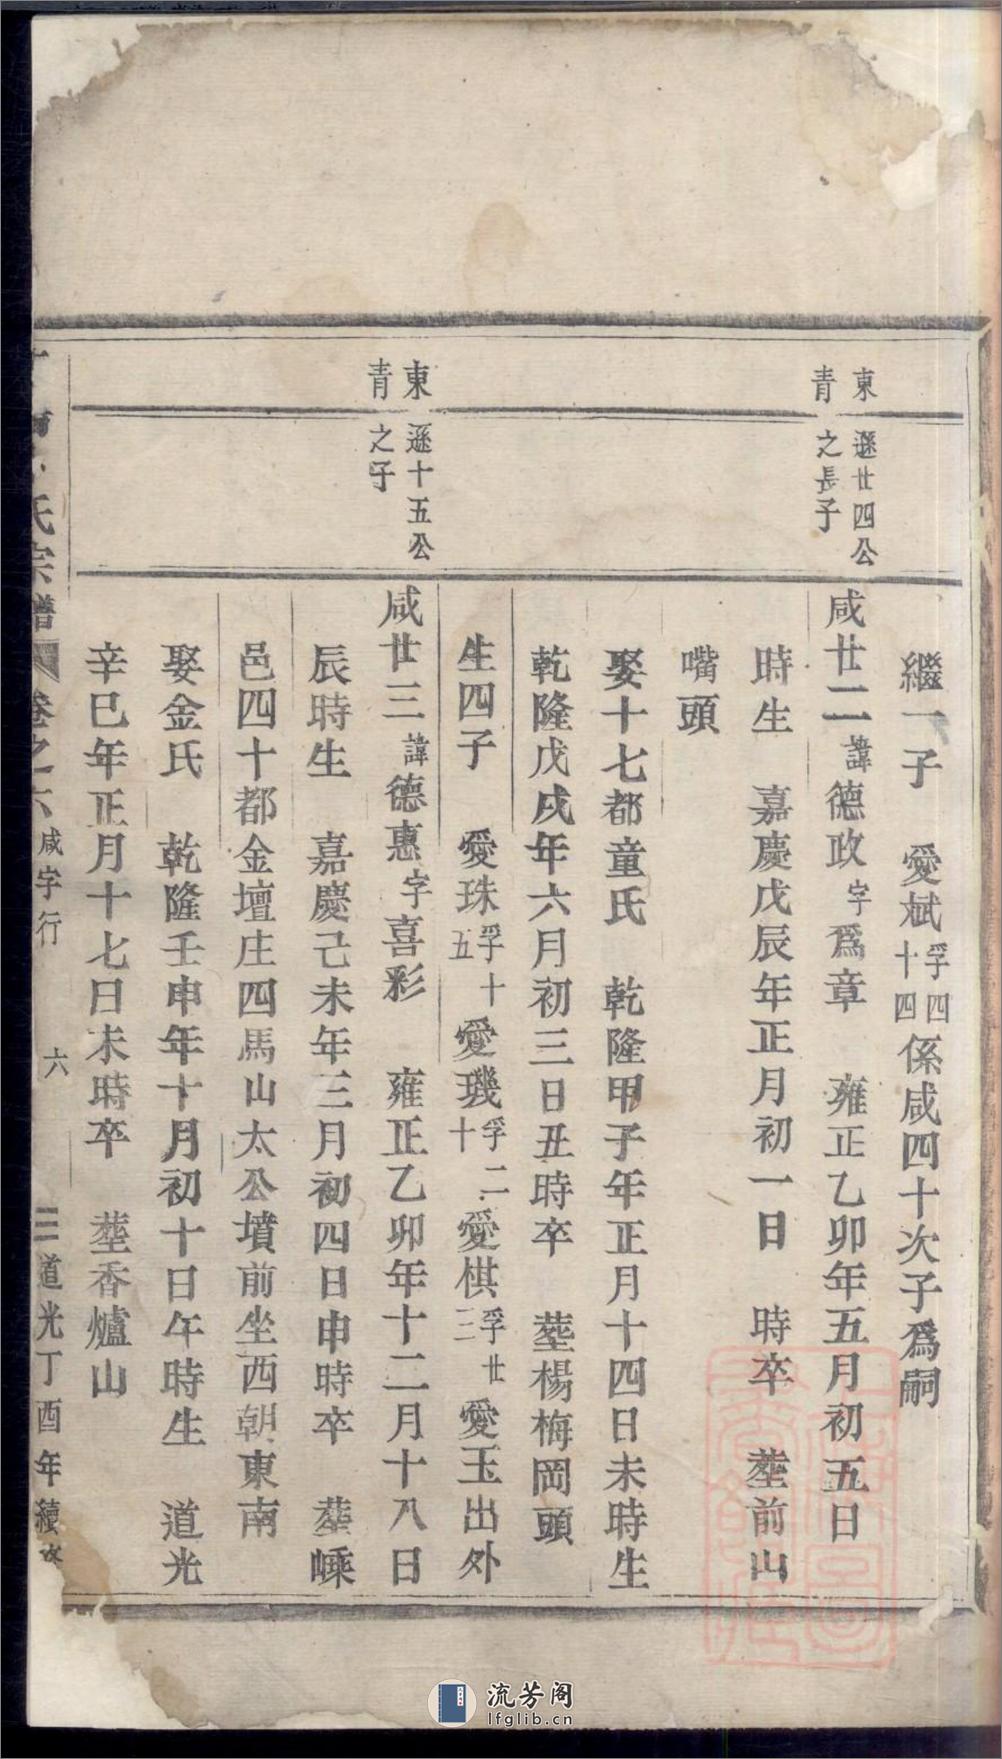 繼一子　愛斌孚四十四係咸四十次子爲嗣
東青
遜廿四公之長子
咸廿二諱德政字爲章　雍正乙卯年五月初五日
時生　嘉慶戊辰年正月初一日　時卒　塟前山
嘴頭
娶十七都童氏　乾隆甲子年正月十四日未時生
乾隆戊戌年六月初三日丑時卒　塟楊梅岡頭
生四子　愛珠孚十五愛璣孚二十愛棋孚廿三愛玉出外
東青
遜十五公之子
咸廿三諱德惠字喜彩　雍正乙卯年十二月十八日
辰時生　嘉慶己未年三月初四日申時卒　塟嵊
邑四十都金壇庄四馬山太公墳前坐西朝東南
娶金氏　乾隆壬申年十月初十日午時生　道光
辛巳年正月十七日未時卒　塟香爐山
氏宗譜　卷之六　咸字行　六　道光丁酉年續
流芳阁
lfglib.cn